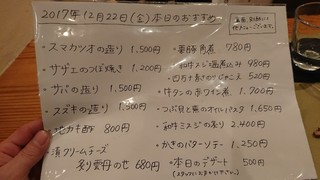 2017年12月22日(金)本日のおすすめ
・スマカツオの造り 1,500円
・サザエのつぼ焼き 1,200円
・サバの造り 1,500円
・スズキの造り 1,300円
地ガキ酢 800円
漬クリームチーズ
炙り雲丹のせ 680円
・豚角煮 980円
・和牛スジ煮込み 480円
・四万十 520円
・牛タンの赤ワイン煮 1,700円
・つぶ貝と のオイルパスタ 1,650円
・和牛ミスジの炙り 2,400円
・かきのバターソテー 1,250円
・本日のデザート 500円